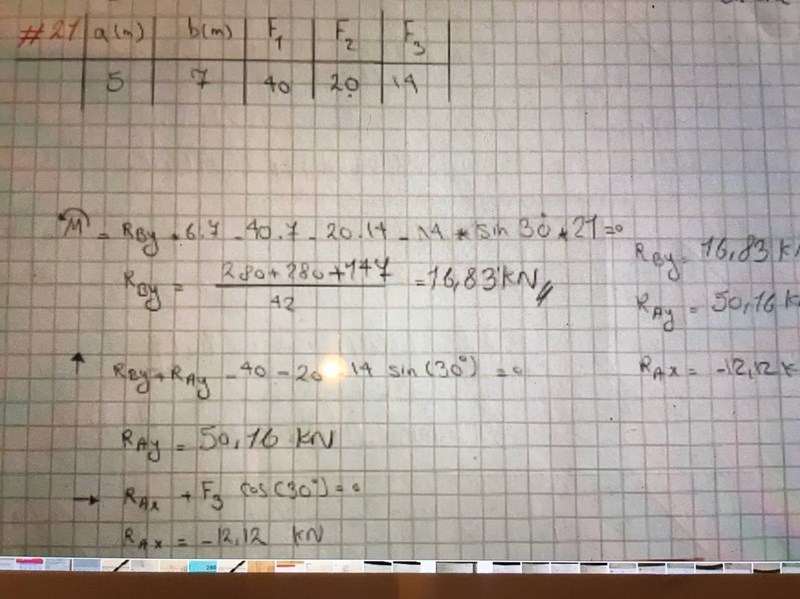 #21 a(m) b(m) F1 F2 F3
5 7 40 20 14
M = RBy * 6.7 - 40.7 - 20.14 - 14 * sin 30° * 21 = 0
RBy = 280+280+147 / 42 = 16,83 kN
RBy = 16,83 k
↑ RBy + RAy - 40 - 20 - 14 sin(30°) = 0
RAy = 50,16 k
RAx = -12,12 k
RAy = 50,16 kN
→ RAx + F3 cos(30°) = 0
RAx = -12,12 kN